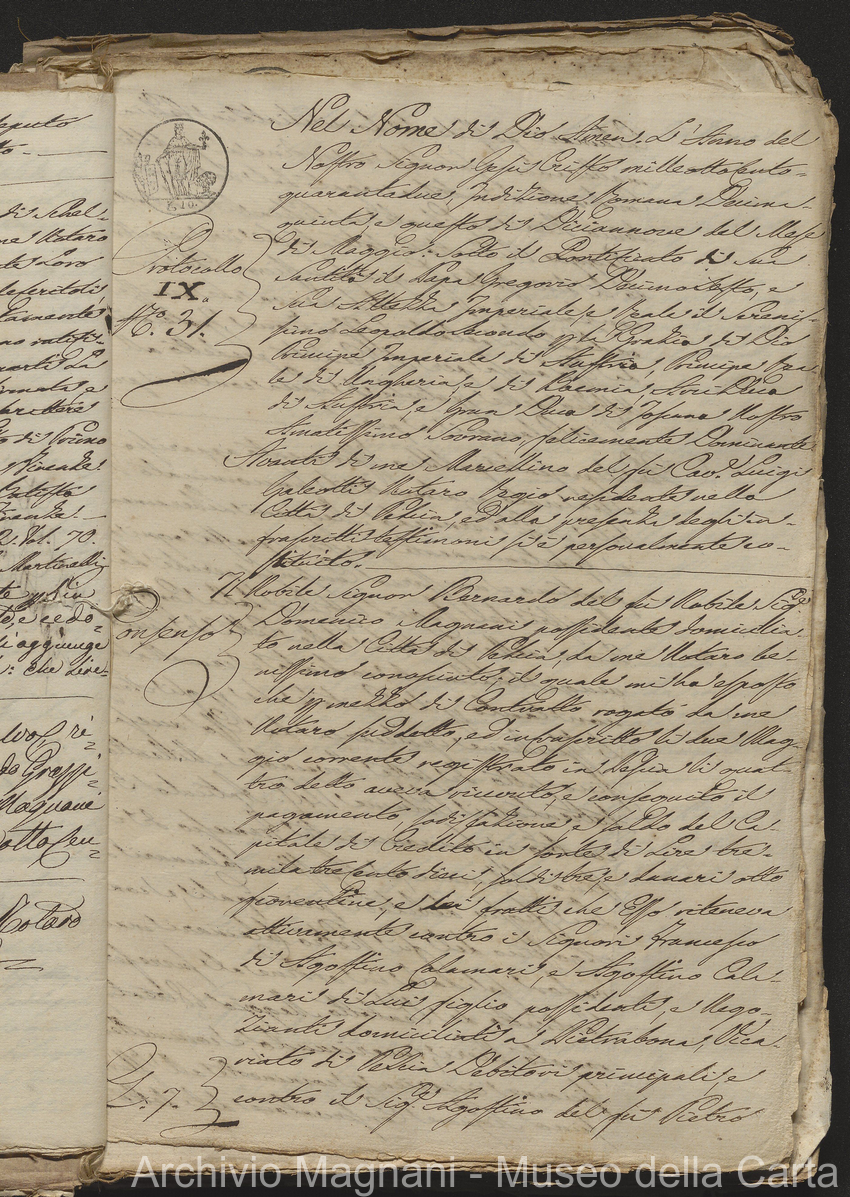 Nel Nome di Dio Amen. L'Anno del
Nostro Signor Gesù Cristo milleottocento=
quarantadue, Indizione Romana Decima
quinta, e questo dì Diciannove del Mese
di Maggio: Sotto il Pontificato di Sua
Santità il Papa Gregorio Decimosesto, e
Sua Altezza Imperiale, e Reale il Serenis=
simo Leopoldo Secondo per la Grazia di Dio
Principe Imperiale di Austria, Principe Rea=
le di Ungheria, e di Boemia, Arciduca
di Austria, e Gran Duca di Toscana Nostro
Amatissimo Sovrano, felicemente Dominante
Avanti di me Marcellino del fu Cav.r Luigi
Galeotti Notaro Regio residente nella
Città di Pescia, ed alla presenza degli in=
frascritti testimoni si è personalmente co=
stituito.
Protocollo
IX.
N.o 31.
Il Nobile Signor Bernardo del fu Nobile Sig.re
Domenico Magnani possidente domicilia=
to nella Città di Pescia, da me Notaro be
nissimo conosciuto; il quale mi ha esposto
che per mezzo di Contratto rogato da me
Notaro suddetto, ed infrascritto li due Mag=
gio corrente registrato in Pescia li quat=
tro detto aveva ricevuto, e conseguito il
pagamento, sodisfazione, e saldo del Ca=
pitale di Credito in sorte di Lire tre=
mila trecento dieci, soldi tre, e danari otto
fiorentine, e dei frutti che Esso riteneva
attivamente contro i Signori Francesco
di Agostino Calamari, e Agostino Cala=
mari di Lui figlio possidenti, e Nego=
zianti domiciliati a Pietrabona, Vica=
riato di Pescia Debitori principali, e
contro il Sig.r Agostino del fu Pietro
onsenso
L. 7.
di me Notaro
Martinelli
2. Vol. 70.
si aggiunge
Magnani
Notaro
Archivio Magnani - Museo della Carta